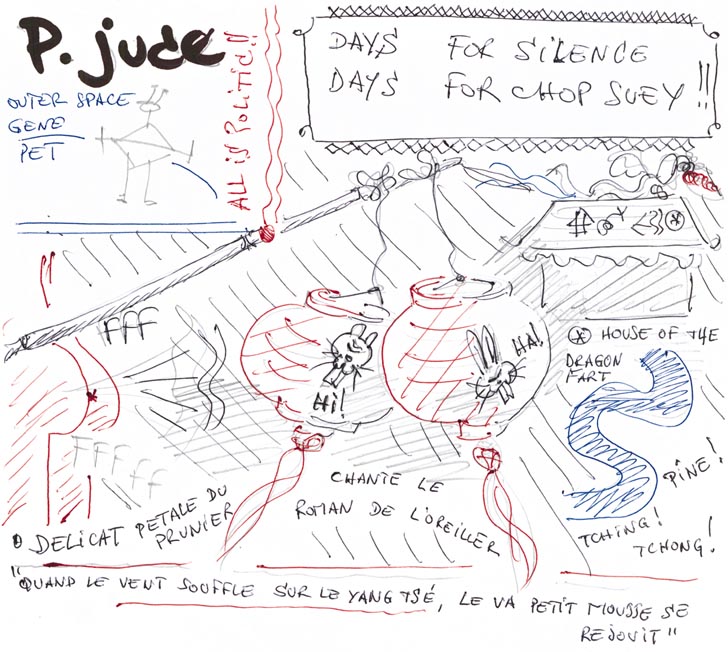 P. jude
OUTER SPACE
GENE
PET
ALL IS POLITIC!!
DAYS FOR SILENCE
DAYS FOR CHOP SUEY!!
FFF
FFFFF
Hi!
HA!
HOUSE OF THE
DRAGON
FART
PÎNE!
TCHING!
TCHONG!
DELICAT PETALE DU
PRUNIER
CHANTE LE
ROMAN DE L'OREILLER
"QUAND LE VENT SOUFFLE SUR LE YANG TSÉ, LE VA PETIT MOUSSE SE
REJOUIT"